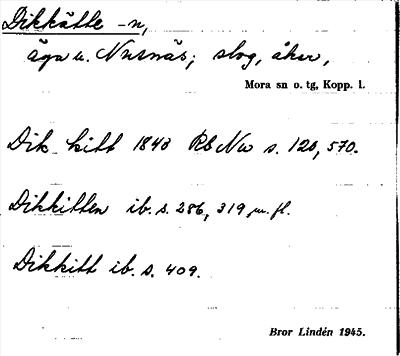 Dikkätte -n,
äga u. Nusnäs; slog, åker,
Mora sn o. tg, Kopp. l.
Dik kitt 1843 RS Nu s. 120, 570.
Dikkitten ib. s. 286, 319 m. fl.
Dikkitt ib. s. 409.
Bror Lindén 1945.